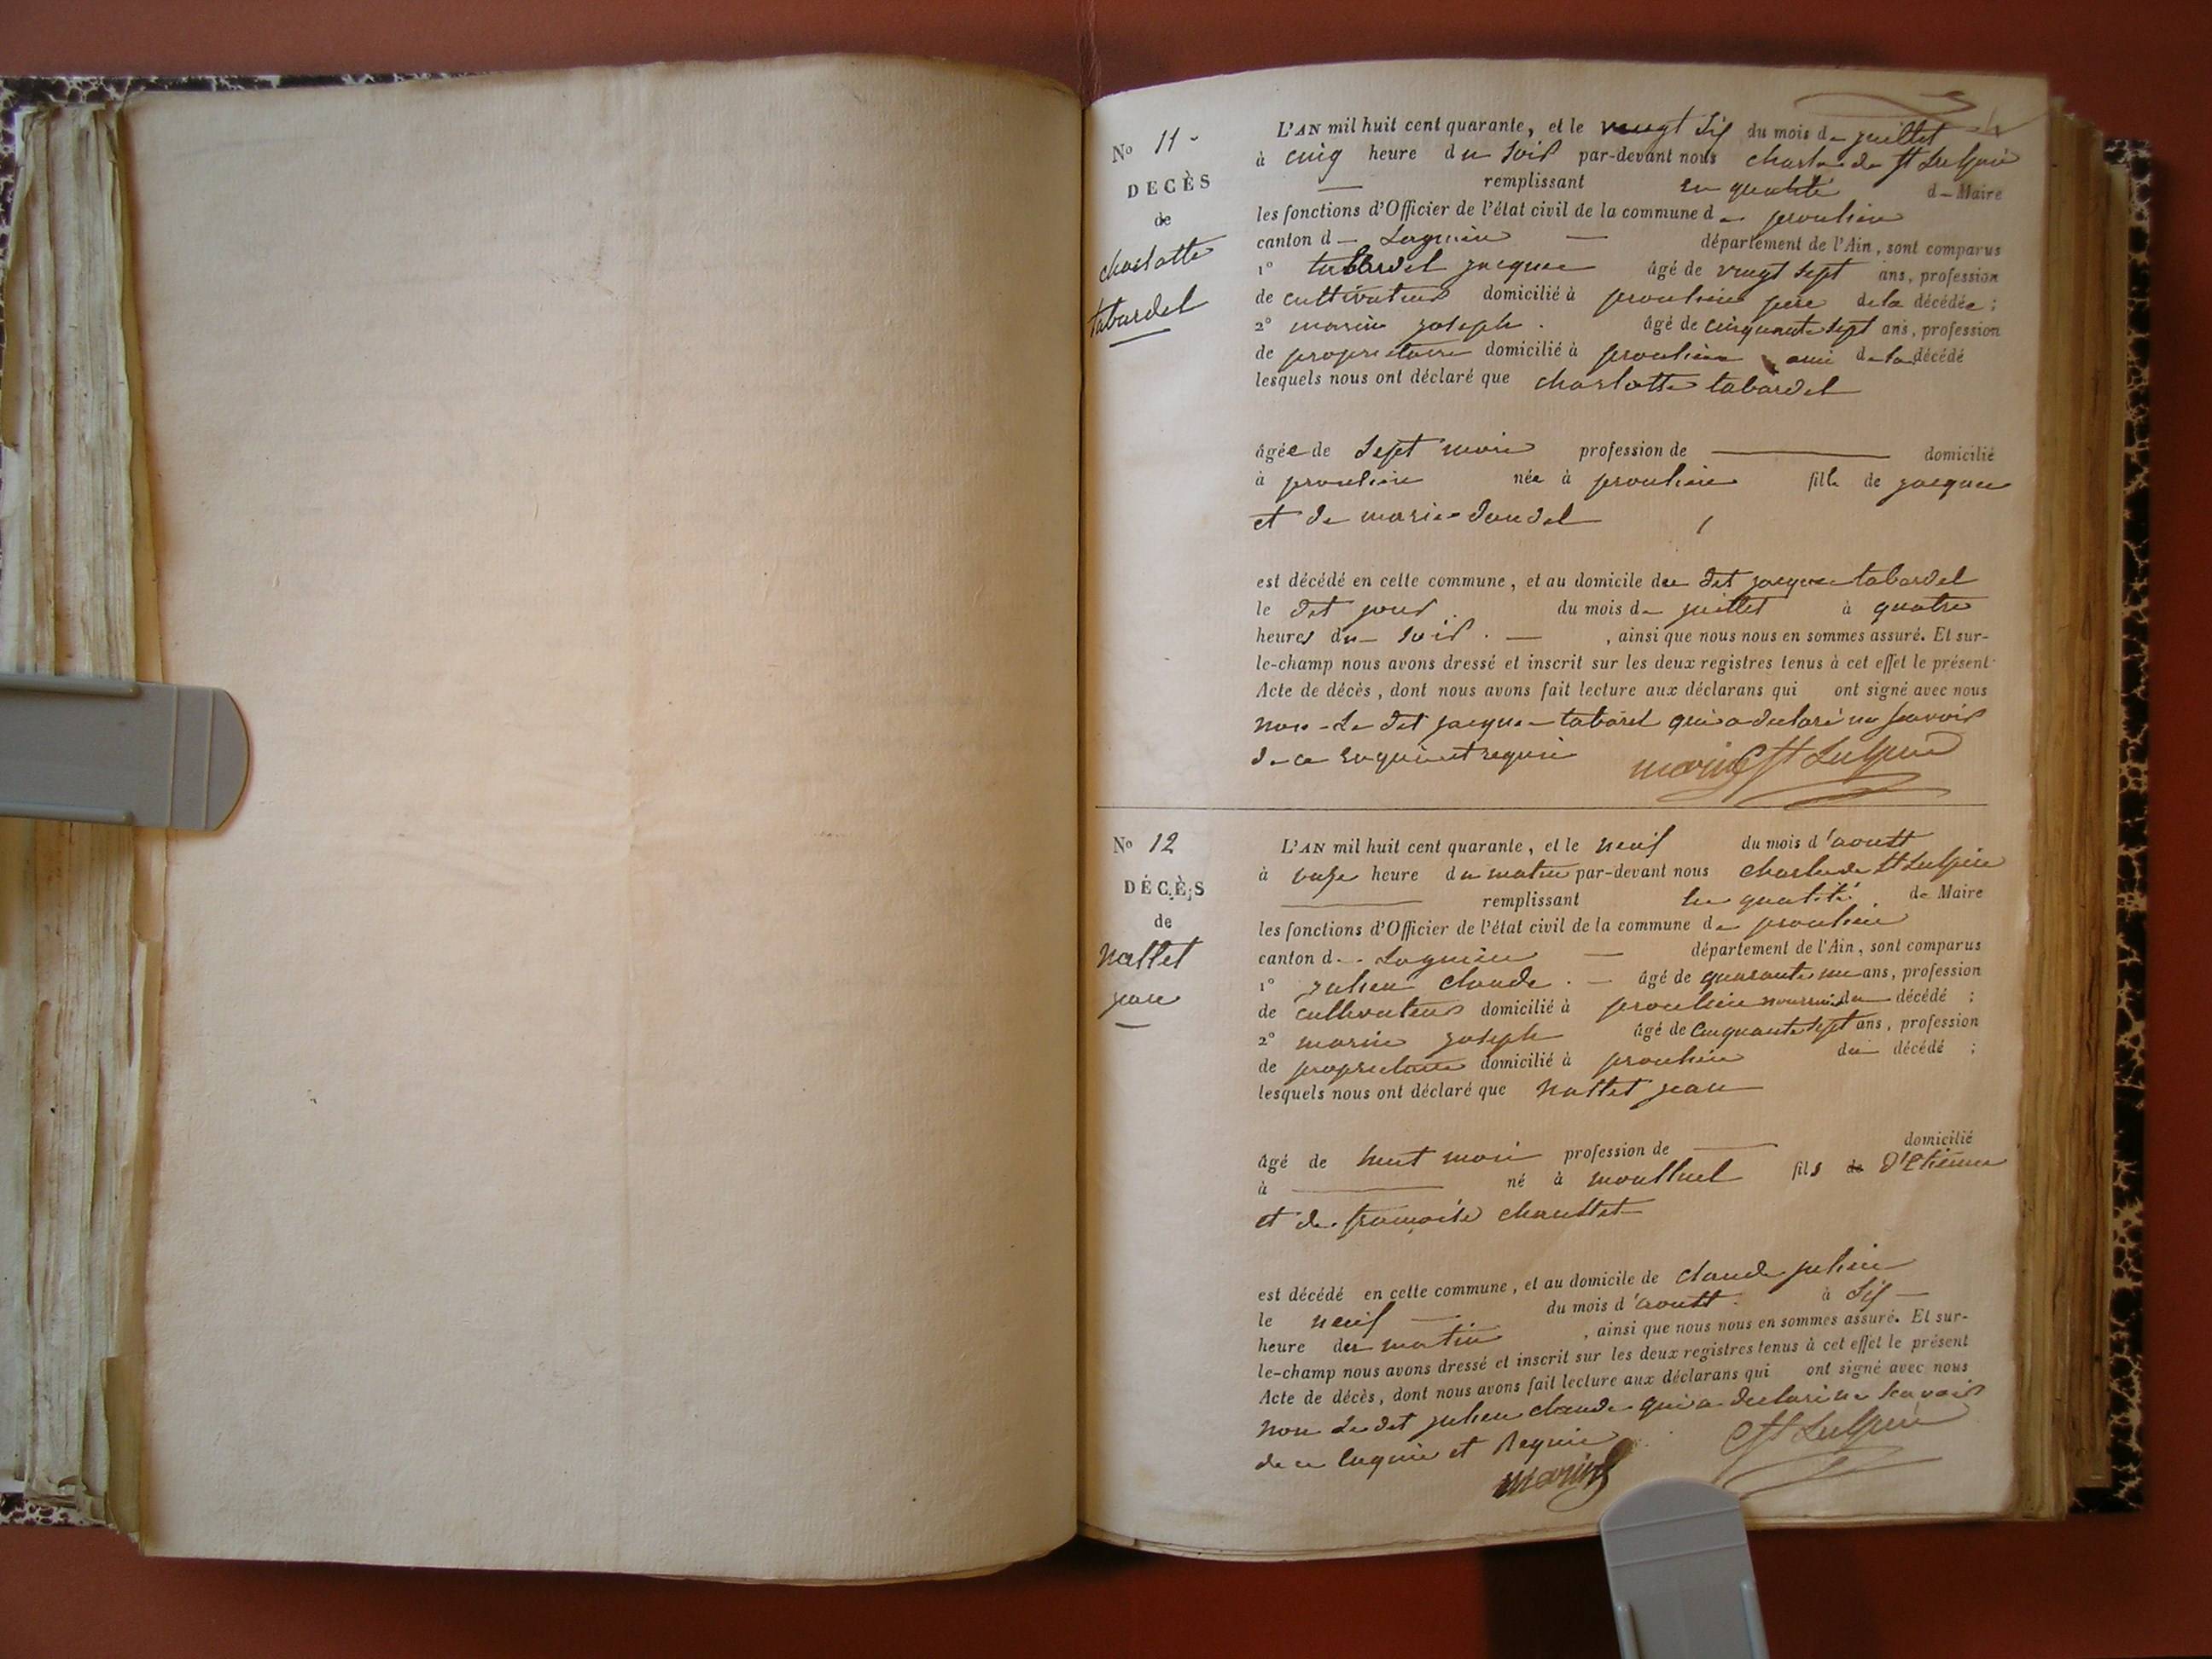 No 11
DECÈS
de
charlotte
tabardel
L'AN mil huit cent quarante, et le vingt six du mois de juillet
à cinq heure du soir par-devant nous charle de St Sulpice
remplissant en qualité de Maire
les fonctions d'Officier de l'état civil de la commune de proulieu
canton de Lagnieu département de l'Ain, sont comparus
1° tabardel jacque âgé de vingt sept ans, profession
de cultivateur domicilié à proulieu pere de la décédée ;
2° marin joseph . âgé de cinquante sept ans, profession
de proprietaire domicilié à proulieu ami de la décédé
lesquels nous ont déclaré que charlotte tabardel
âgée de sept mois profession de domicilié
à proulieu née à proulieu fille de jacque
et de marie
est décédé en cette commune, et au domicile du dit jacque tabardel
le dit jour du mois de juillet à quatre
heures du soir . , ainsi que nous nous en sommes assuré. Et sur-
le-champ nous avons dressé et inscrit sur les deux registres tenus à cet effet le présent
Acte de décès, dont nous avons fait lecture aux déclarans qui ont signé avec nous
non le dit jacque tabarel qui a declaré ne savoir
de ce enquis et requis marin St Sulpice
No 12
DÉCÈS
de
Nallet
jean
L'AN mil huit cent quarante, et le neuf du mois d'aoust
à onze heure du matin par-devant nous charle de St Sulpice
remplissant en qualité de Maire
les fonctions d'Officier de l'état civil de la commune de proulieu
canton de Lagnieu département de l'Ain, sont comparus
1° julien claude . âgé de quarante un ans, profession
de cultivateur domicilié à proulieu du décédé ;
2° marin joseph âgé de cinquante sept ans, profession
de proprietaire domicilié à proulieu du décédé ;
lesquels nous ont déclaré que Nallet jean
âgé de huit mois profession de domicilié
à né à montluel fils de d'Etienne
et de francoise
est décédé en cette commune, et au domicile de claude julien
le neuf du mois d'aoust . à six
heure du matin , ainsi que nous nous en sommes assuré. Et sur-
le-champ nous avons dressé et inscrit sur les deux registres tenus à cet effet le présent
Acte de décès, dont nous avons fait lecture aux déclarans qui ont signé avec nous
non le dit julien claude qui a declaré ne savoir
de ce enquis et requis St Sulpice
marin